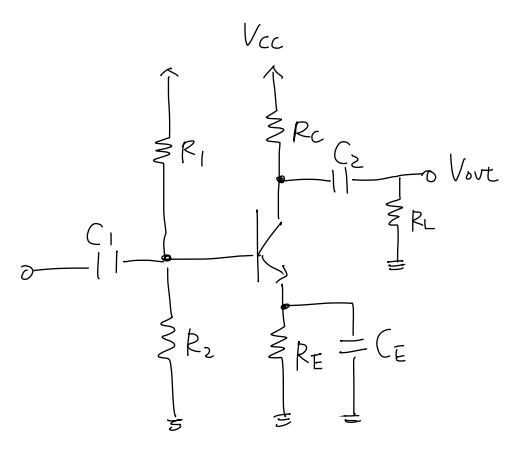 Vcc
R1
Rc
C2
Vout
RL
C1
R2
RE
CE